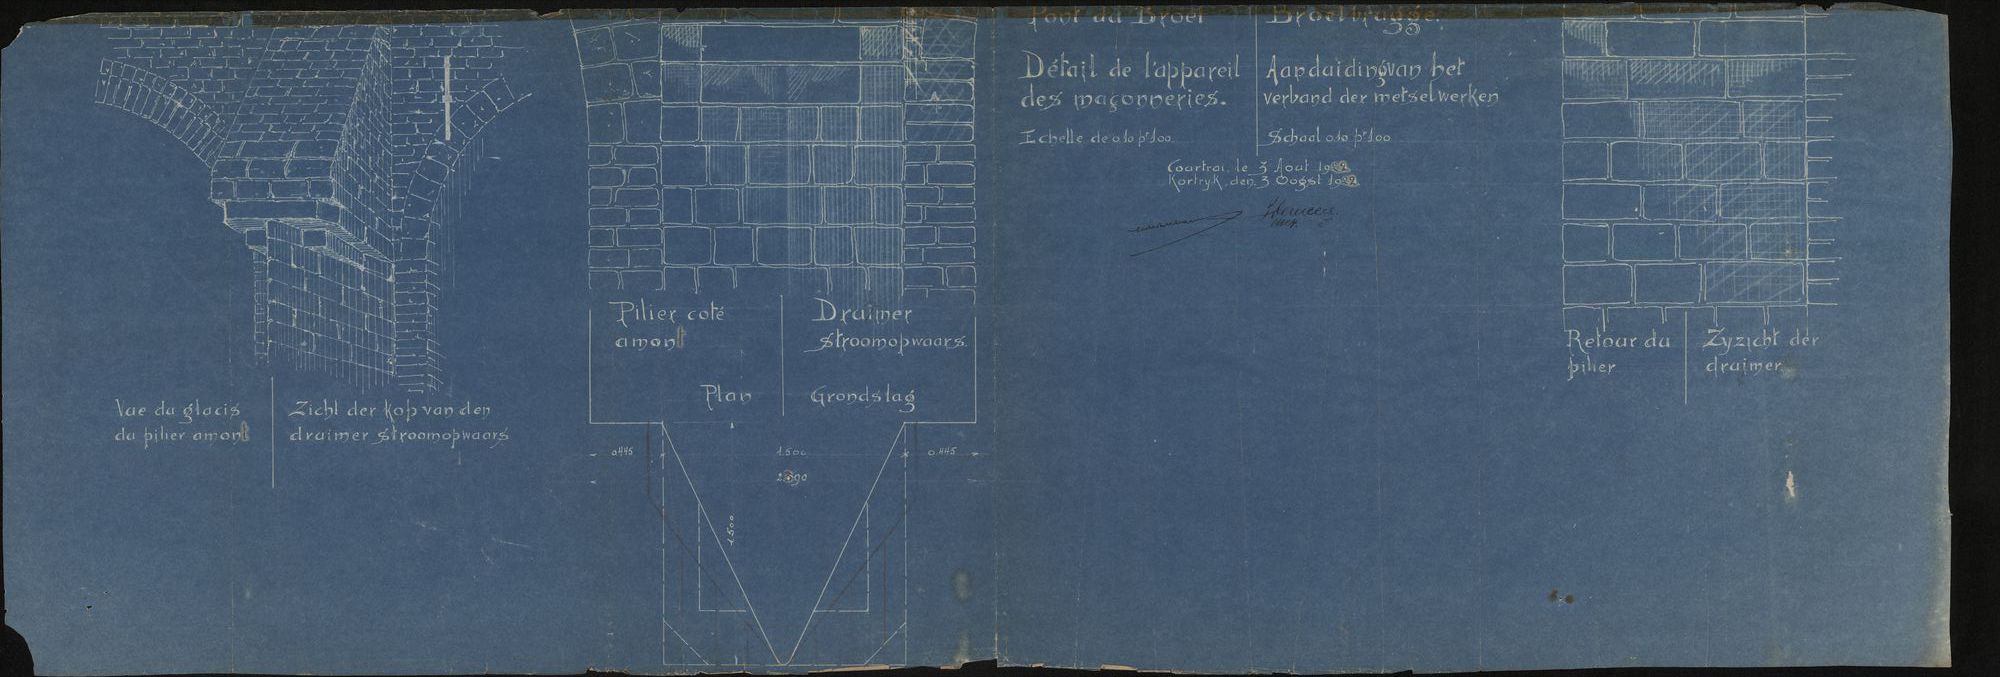 Pont du Broel
Broelbrugge.
Détail de l'appareil
des maçonneries.
Aanduiding van het
verband der metselwerken
Echelle de 0.10 pr 1.00
Schaal 0.10 pr 1.00
Courtrai, le 3 Aout 1922
Kortryk, den 3 Oogst 1922
Vue du glacis
du pilier amont
Zicht der kop van den
draimer stroomopwaars
Pilier coté
amont
Draimer
stroomopwaars.
Plan
Grondslag
0.445
1.500
0.445
1.500
Retour du
pilier
Zyzicht der
draimer